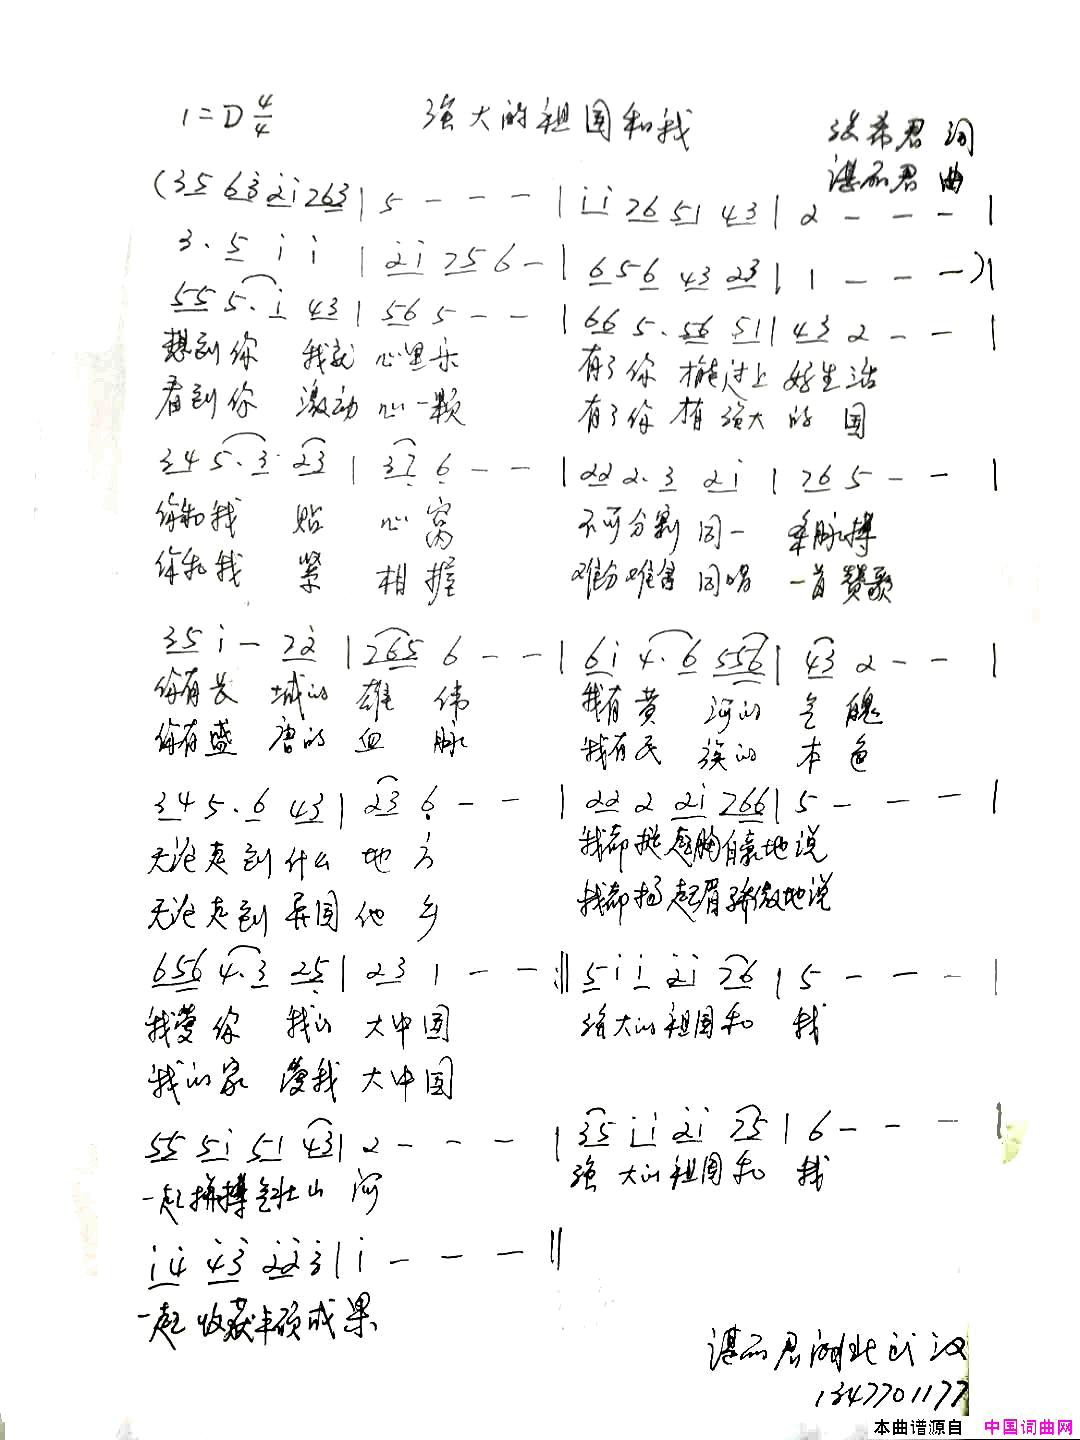 1=D 4/4 强大的祖国和我
张希君 词
湛丽君 曲
(35 63 21 763 | 5 - - - | 11 76 51 43 | 2 - - - |
3. 5 1 1 | 21 75 6 - | 656 43 23 | 1 - - - ) |
55 5. 1 43 | 56 5 - - | 66 5. 56 51 | 43 2 - - |
想到你 我就 心里乐 有了你 才能过上 好生活
看到你 激动 心一颗 有了你 才有 强大 的 国
34 5. 3 23 | 37 6 - - | 22 2. 3 21 | 76 5 - - |
你和我 贴 心 窝 不可分割 同一 条脉搏
你和我 紧 相 握 难分难舍 同唱 一首赞歌
35 1 - 72 | 765 6 - - | 61 4. 6 556 | 43 2 - - |
你有长 城的 雄 伟 我有黄 河的 气 魄
你有盛 唐的 血 脉 我有民 族的 本 色
34 5. 6 43 | 23 6 - - | 22 2 21 766 | 5 - - - |
无论走到什么 地 方 我都挺起胸自豪地说
无论走到异国他 乡 我都扬起眉骄傲地说
656 4. 3 25 | 23 1 - - :‖ 51 1 21 76 | 5 - - - |
我爱你 我的 大中国 强大的祖国和 我
我的家 爱我 大中国
55 51 51 43 | 2 - - - | 35 11 21 75 | 6 - - - |
一起拼搏气壮山 河 强 大的祖国和 我
14 43 223 | 1 - - - ‖
一起 收获丰硕成果
湛丽君湖北武汉
1347701177
本曲谱源自 中国词曲网